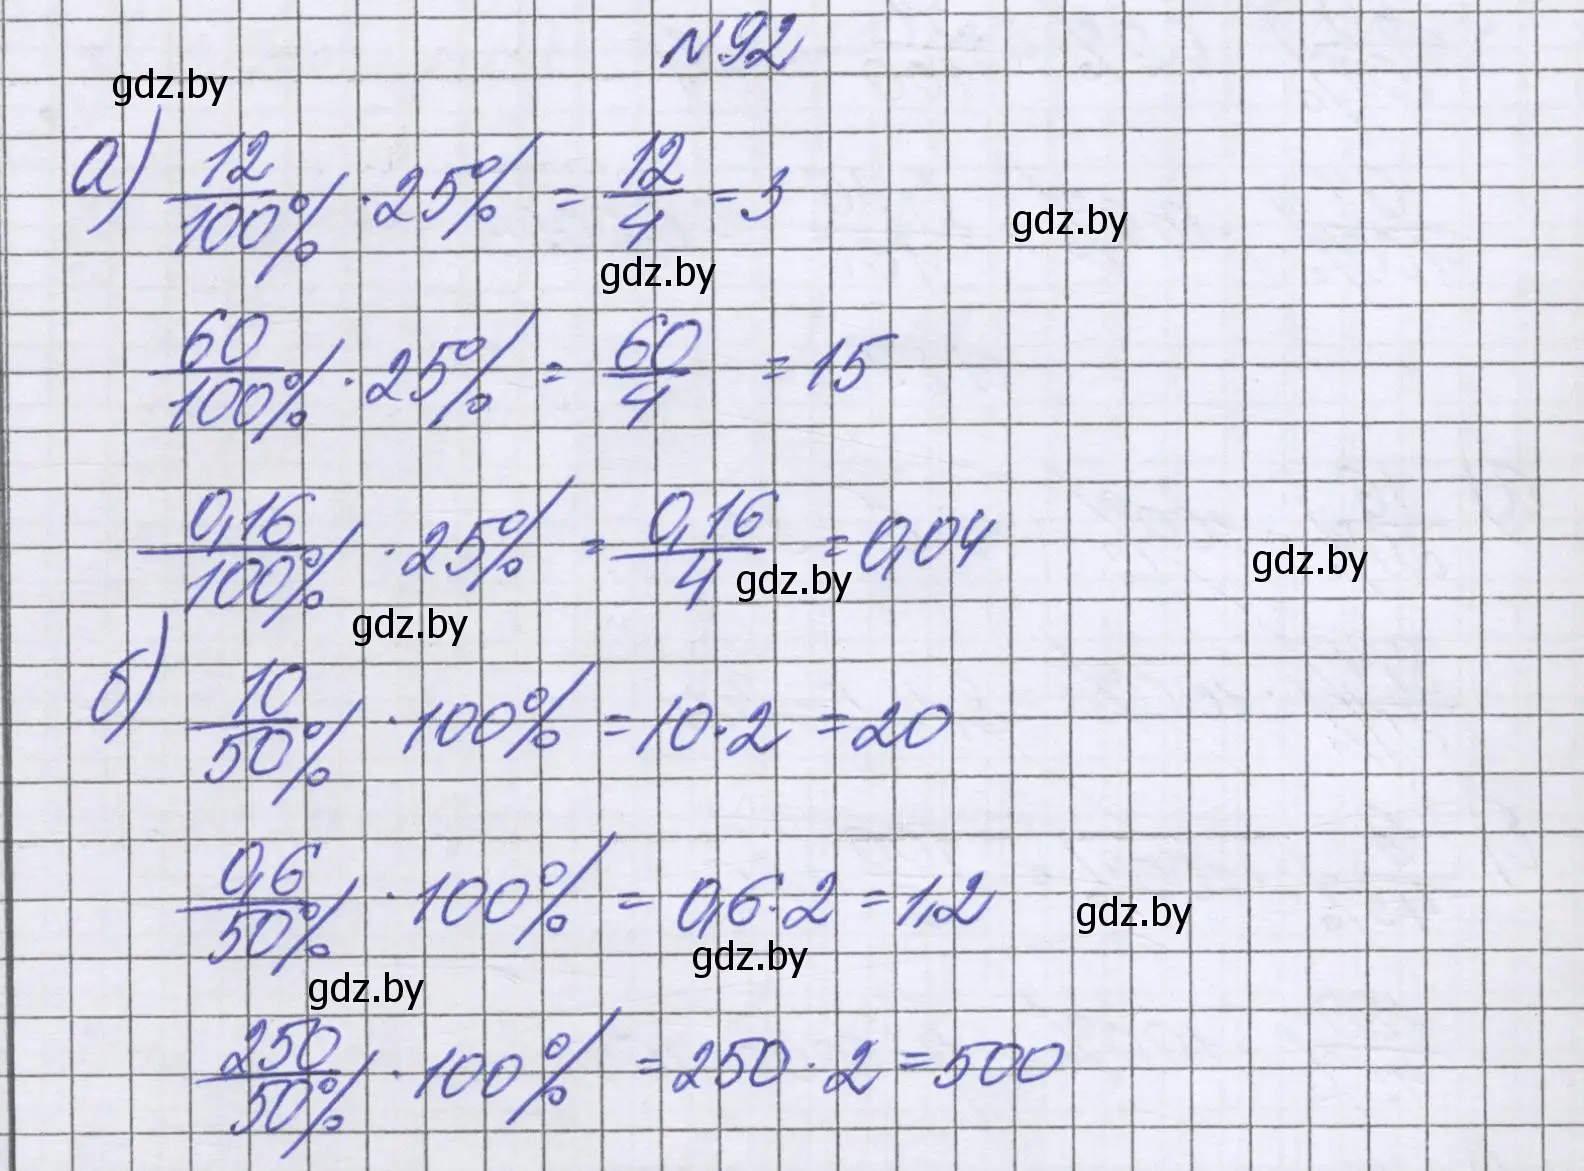 №92
gdz.by
а) 12/100% · 25% = 12/4 = 3
gdz.by
gdz.by
60/100% · 25% = 60/4 = 15
0,16/100% · 25% = 0,16/4 = 0,04
gdz.by
gdz.by
gdz.by
б) 10/50% · 100% = 10·2 = 20
0,6/50% · 100% = 0,6·2 = 1,2
gdz.by
gdz.by
gdz.by
250/50% · 100% = 250·2 = 500